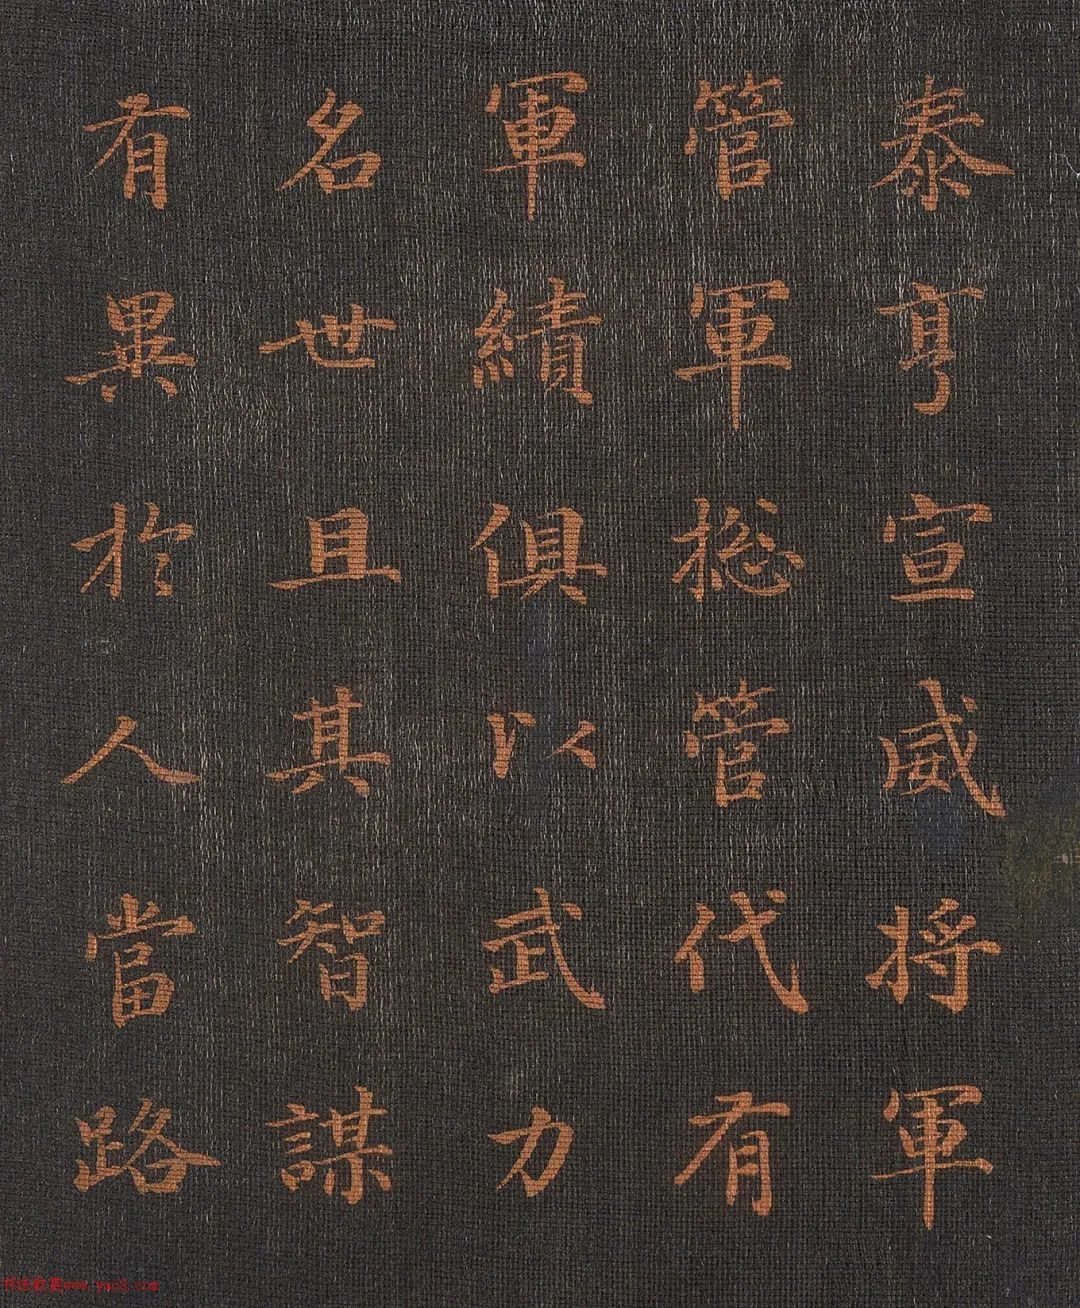 泰亨宣威将軍
管軍揔管代有
軍績俱以武力
名世且其智謀
有異於人當路
www.yac8.com